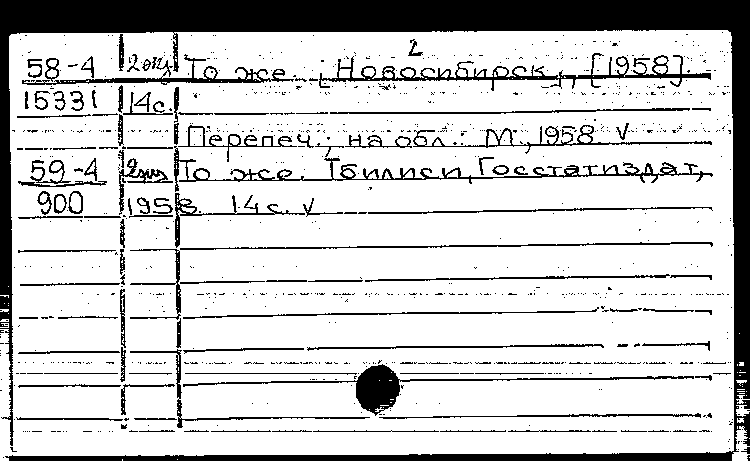 2
58-4 2 экз То же. [Новосибирск], [1958].
15331 14с.
Перепеч.; на обл.: М., 1958 V
59-4 2экз То же. Тбилиси, Госстатиздат,
900 1958. 14с. V